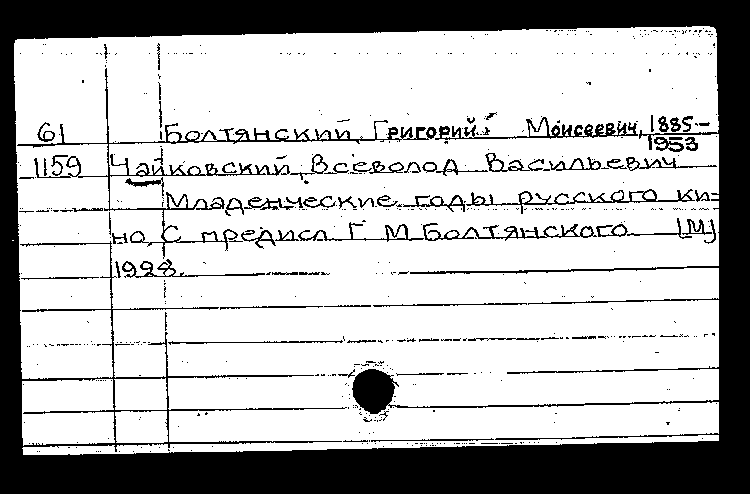 61 Болтянский, Григорий Моисеевич, 1885–1953
1159 Чайковский, Всеволод Васильевич
Младенческие годы русского ки=
но. С предисл Г. М. Болтянского [М]
1928.